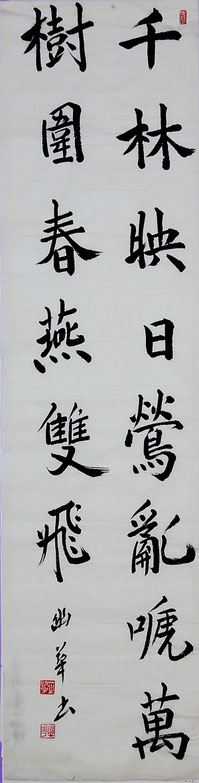 千林映日鶯亂嗁萬
樹圍春燕雙飛
幽華书